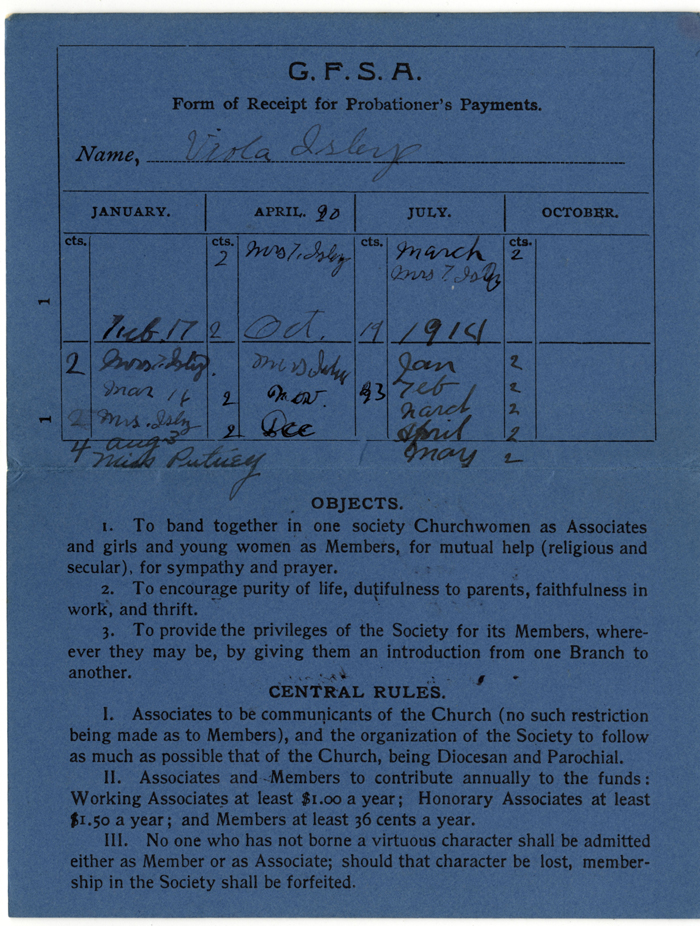 G. F. S. A.
Form of Receipt for Probationer's Payments.
Name, Viola Isley
JANUARY. APRIL. 20 JULY. OCTOBER.
cts. cts. 2 Mrs T. Isley cts. March cts. 2
Mrs T. Isley
1
Feb. 17 2 Oct. 19 1914
2 Mrs. T. Isley. Mrs Isley Jan 2
Mar 2 Nov. Feb 2
1 2 Mrs. Isley March 2
4 Aug 3 2 Dec April 2
Miss Putney May 2
OBJECTS.
1. To band together in one society Churchwomen as Associates
and girls and young women as Members, for mutual help (religious and
secular), for sympathy and prayer.
2. To encourage purity of life, dutifulness to parents, faithfulness in
work, and thrift.
3. To provide the privileges of the Society for its Members, where-
ever they may be, by giving them an introduction from one Branch to
another.
CENTRAL RULES.
I. Associates to be communicants of the Church (no such restriction
being made as to Members), and the organization of the Society to follow
as much as possible that of the Church, being Diocesan and Parochial.
II. Associates and Members to contribute annually to the funds:
Working Associates at least $1.00 a year; Honorary Associates at least
$1.50 a year; and Members at least 36 cents a year.
III. No one who has not borne a virtuous character shall be admitted
either as Member or as Associate; should that character be lost, member-
ship in the Society shall be forfeited.